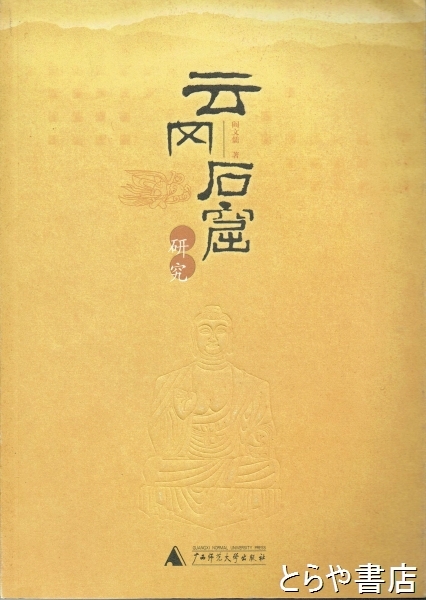 云冈石窟
研究
阎文儒 著
GUANGXI NORMAL UNIVERSITY PRESS
广西师范大学出版社
とらや書店